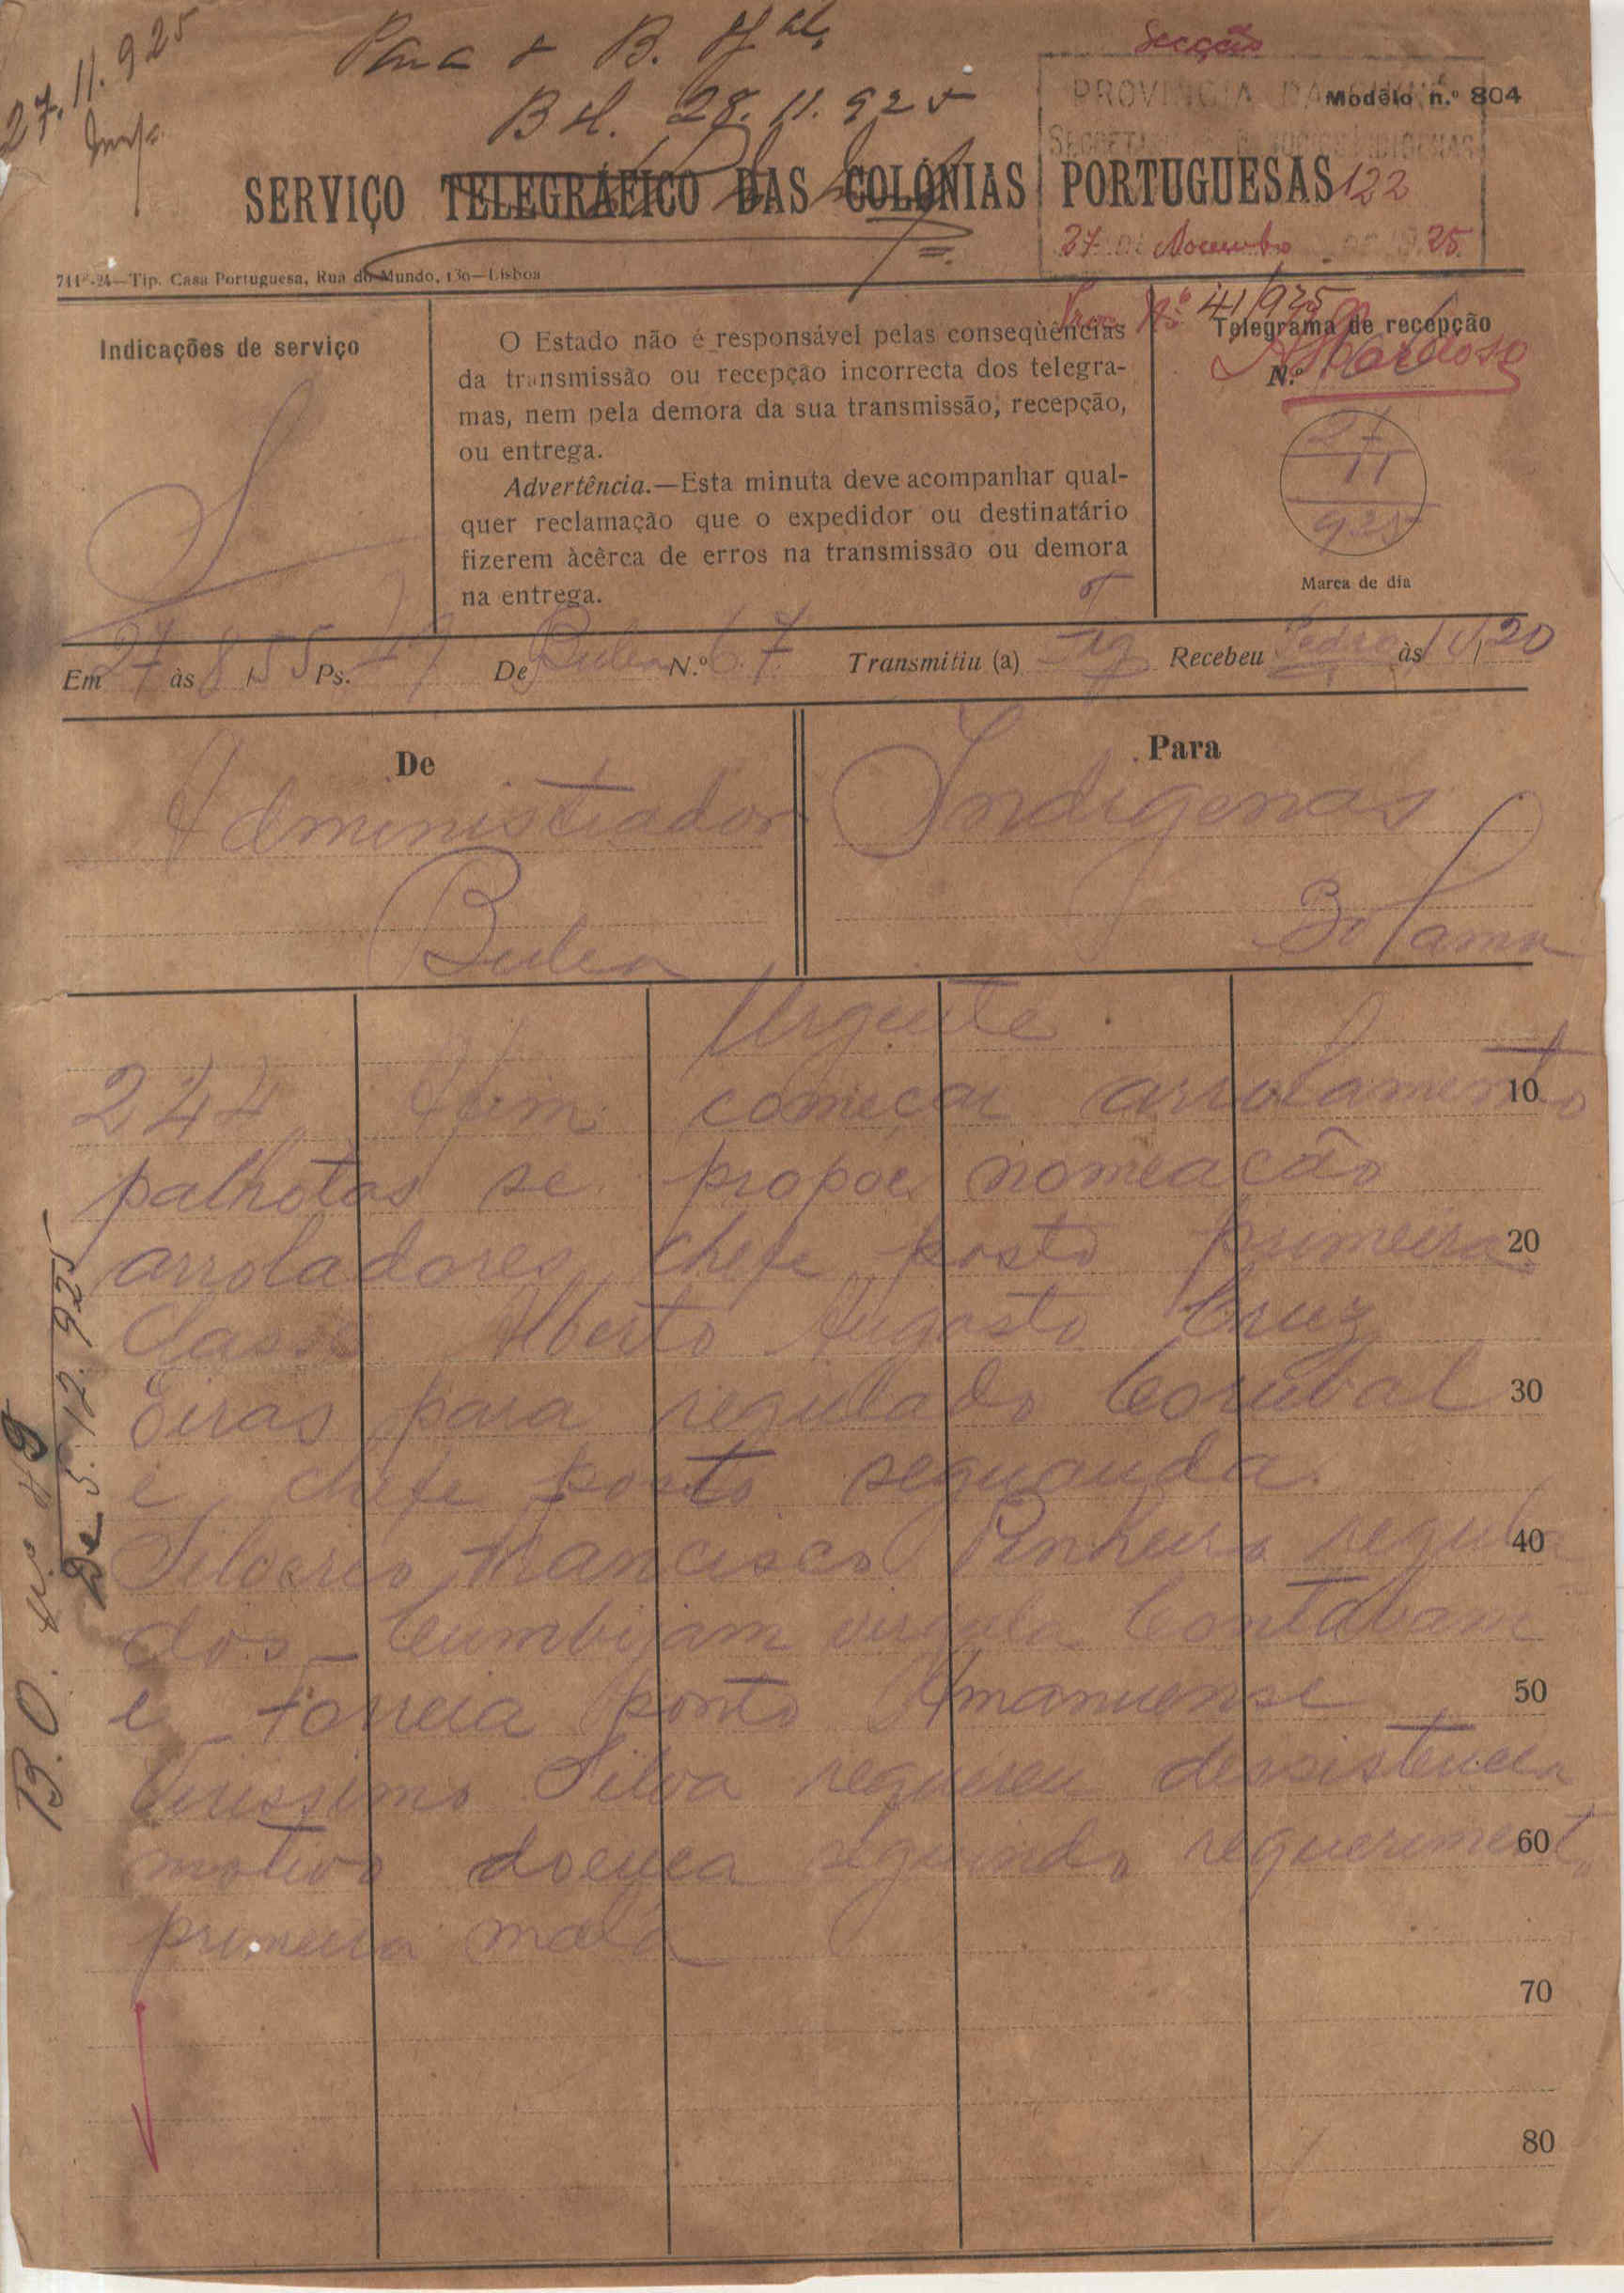 27.11.925
Para o B. Of.al
Bol. 28.11.925
Secção
PROVINCIA DA GUINÉ
Modelo n.º 804
SECRETARIA NEGOCIOS INDIGENAS
SERVIÇO TELEGRÁFICO DAS COLÓNIAS PORTUGUESAS
122
27 de Novembro de 1925
711-24—Tip. Casa Portuguesa, Rua do Mundo, 130—Lisboa
Nº 41/925
Indicações de serviço
O Estado não é responsável pelas conseqùências
da transmissão ou recepção incorrecta dos telegra-
mas, nem pela demora da sua transmissão, recepção,
ou entrega.
Advertência.—Esta minuta deve acompanhar qual-
quer reclamação que o expedidor ou destinatário
fizerem àcêrca de erros na transmissão ou demora
na entrega.
Telegrama de recepção
N.º
Cardoso
27
11
925
Marca de dia
Em 27 às 8 55 Ps. 47 De Buba N.º 67 Transmitiu (a) Recebeu Pedro às 10,20
De
Administrador
Buba
Para
Indigenas
Bolama
Urgente
244 Afim começar arrolamento
10
palhotas se propoe nomeacão
arroladores chefe posto primeira
20
classe Alberto Augosto Cruz
Eiras para regulado Corubal
30
e chefe posto segunda
Silverio Francisco Pinheiro regula
40
dos Cumbijam virgula Contabane
e Forreia ponto Amanuense
50
Virissimo Silva requereu dessistencia
motivo doença seguindo requerimento
60
primeira mala
70
80
B.O. nº 49
De 5.12.925